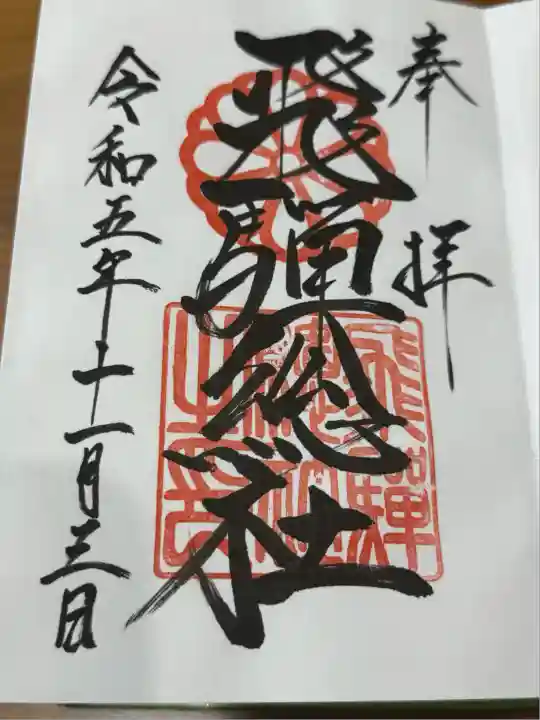 奉拝
飛騨総社
飛騨総社之印
令和五年十一月三日